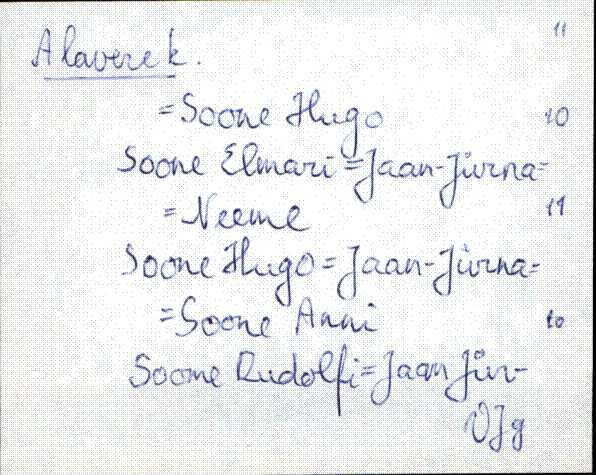 11
Alavere k.
=Soone Hugo 10
Soone Elmari=Jaan-Jürna=
=Neeme 11
Soone Hugo=Jaan-Jürna=
=Soone Anni 10
Soone Rudolfi=Jaan Jür-